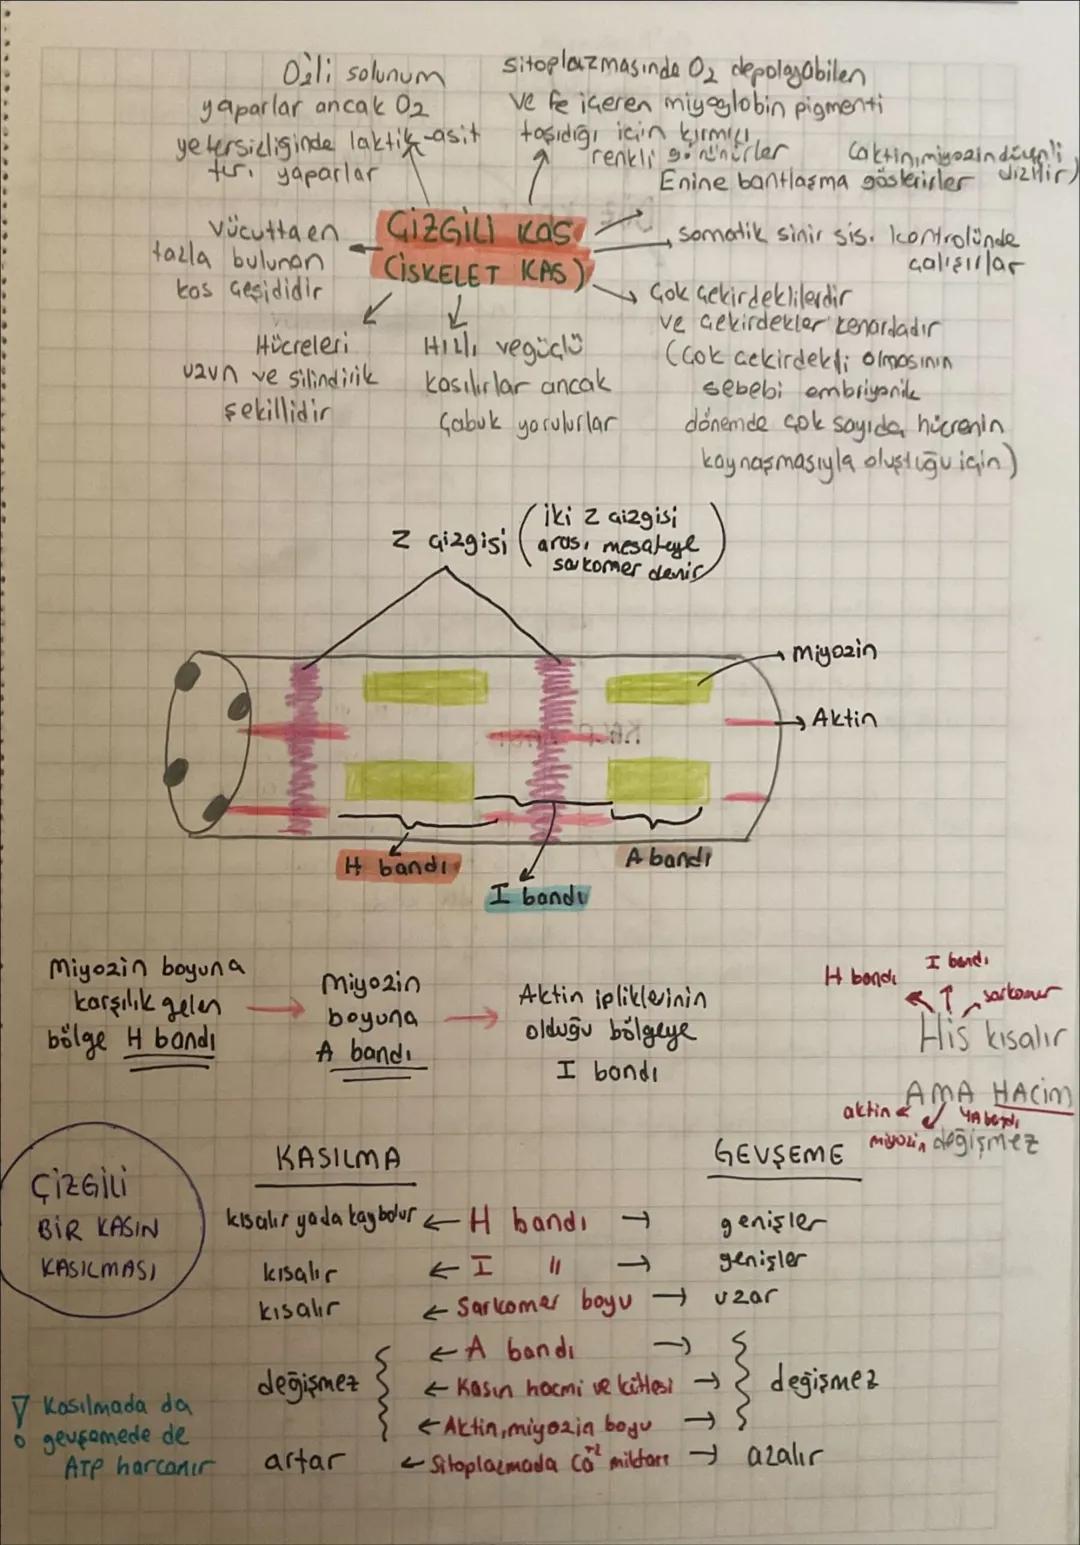 O₂li solunum
yaparlar ancak O₂
yetersizliğinde laktik asit
fer. yaparlar
sitoplazmasında O₂ depolayabilen
ve fe içeren miyoglobin pigmenti
taşıdığı için kırmızı
renkli görünürler
(aktin, miyozin düzenli
dizilir)
Enine bantlaşma gösterirler
ÇİZGİLİ KAS
(İSKELET KAS)
Vücutta en
fazla bulunan
kas çeşididir
somatik sinir sis. kontrolünde
çalışırlar
Hücreleri
uzun ve silindirik
şekillidir
Hızlı ve güçlü
kasılırlar ancak
çabuk yorulurlar
Çok çekirdeklilerdir
ve çekirdekler kenardadır
(Çok çekirdekli olmasının
sebebi embriyonik
dönemde çok sayıda hücrenin
kaynaşmasıyla oluştuğu için)
Z çizgisi
(İki Z çizgisi
arası mesafeye
sarkomer denir)
Miyozin
Aktin
H bandı
I bandı
A bandı
Miyozin boyuna
karşılık gelen
bölge H bandı
Miyozin
boyuna
A bandı
Aktin ipliklerinin
olduğu bölgeye
I bandı
H bandı
I bandı
sarkomer
His kısalır
AMA HACİM
aktin
miyozin
A bandı
değişmez
ÇİZGİLİ
BİR KASIN
KASILMASI
KASILMA
GEVŞEME
kısalır yada kaybolur ← H bandı → genişler
kısalır ← I " → genişler
kısalır ← Sarkomer boyu → uzar
← A bandı →
değişmez ← Kasın hacmi ve kütlesi → değişmez
← Aktin, miyozin boyu →
artar ← Sitoplazmada Ca⁺² miktarı → azalır
Kasılmada da
gevşemede de
ATP harcanır